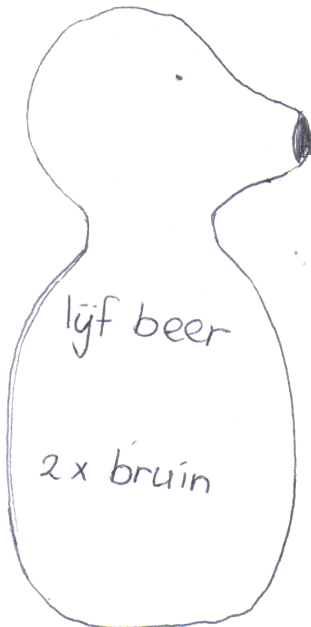 lijf beer
2 x bruin